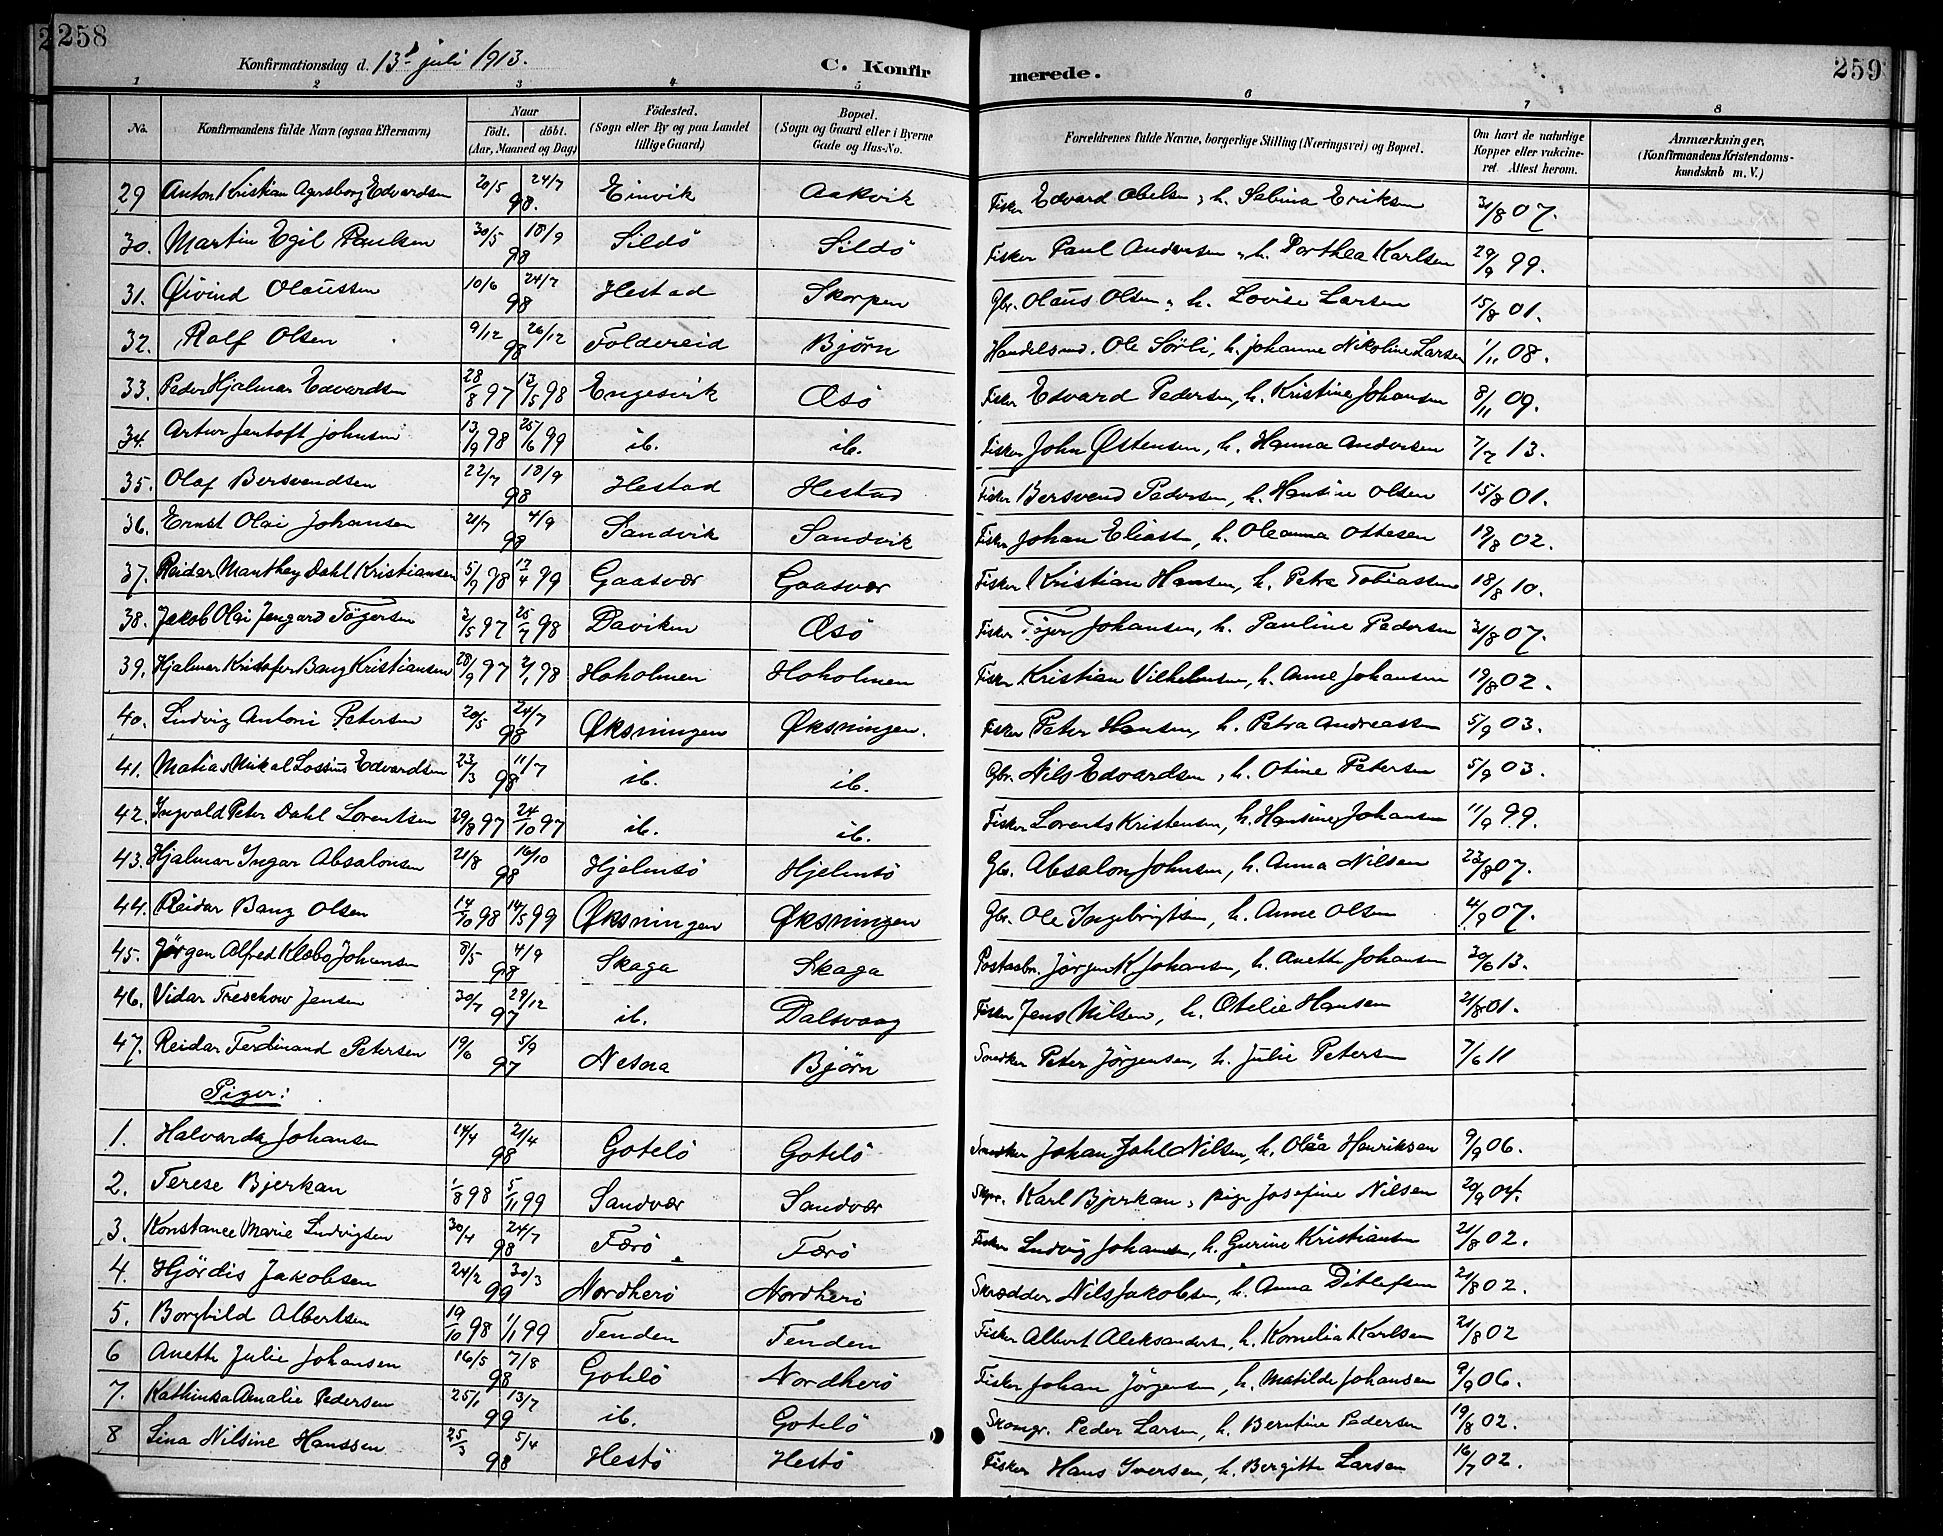 258
259
Konfirmationsdag d. 13d juli 1913.
C. Konfir
merede.
1 2 3 4 5 6 7 8
No. Konfirmandens fulde Navn (ogsaa Efternavn) Naar født. døbt. (Aar, Maaned og Dag) Fødested. (Sogn eller By og paa Landet tillige Gaard) Bopæl. (Sogn og Gaard eller i Byerne Gade og Hus-No. Forældrenes fulde Navne, borgerlige Stilling (Næringsvei) og Bopæl. Om havt de naturlige Kopper eller vaksineret. Attest herom. Anmærkninger. (Konfirmandens Kristendomskundskab m. V.)
29 Anton Kristian Agersborg Edvardsen 20/5 24/7 98. Einvik Aakvik Fisker Edvard Abelsen, h. Sabina Eriksen 31/8 07.
30. Martin Egil Paulsen 30/5 18/9 98 Sildö Sildö Fisker Paul Andersen, h. Dorthea Karlsen 29/9 99.
31. Øivind Olaussen 10/6 24/7 98 Hestad Skorpen Gbr. Olaus Olsen, h. Lovise Larsen 15/8 01.
32. Rolf Olsen 9/12 26/12 98 Foldereid Bjørn Handelsmd. Ole Sörli, h. Johanne Nikoline Larsen 1/11 08.
33. Peder Hjalmar Edvardsen 28/8 97 13/5 98 Engesvik Æsö Fisker Edvard Pedersen, h. Kristine Johansen 8/11 09.
34. Artur Jentoft Johnsen 13/9 98 25/6 99 ib. ib. Fisker John Østensen, h. Hanna Andersen 7/7 13.
35. Olaf Bersvendsen 22/7 18/9 98 Hestad Hestad Fisker Bersvend Pedersen, h. Hansine Olsen 15/8 01.
36. Ernst Olai Johansen 21/7 4/9 98 Sandvik Sandvik Fisker Johan Eliass., h. Oleanna Ottesen 19/8 02.
37. Reidar Manthey Dahl Kristiansen 5/9 98 13/4 99 Gaasvær Gaasvær Fisker Kristian Hansen, h. Petra Tobiassen 18/8 10.
38. Jakob Olai Jengard Tögersen 3/5 97 25/7 98 Daviken Æsö Fisker Töger Johansen, h. Pauline Pedersen 31/8 07.
39. Hjalmar Kristofer Bang Kristiansen 28/9 97 2/1 98 Hoholmen Hoholmen Fisker Kristian Vilhelmsen, h. Anne Johansen 19/8 02.
40. Ludvig Antoni Petersen 20/5 24/7 98 Øksningen Øksningen. Fisker Peter Hansen, h. Petra Andreassen 5/9 03.
41. Matias Mikal Lossius Edvardsen 23/3 11/7 98 ib. ib. Gbr. Nils Edvardsen, h. Otine Petersen 5/9 03.
42. Ingvald Peter Dahl Lorentsen 29/8 97 24/10 97 ib. ib. Fisker Lorents Kristensen, h. Hansine Johansen 11/9 99.
43. Hjalmar Ingar Absalonsen 21/8 16/10 98 Hjelmsö Hjelmsö Gbr. Absalon Johnsen, h. Anna Nilsen 23/8 07.
44. Reidar Bang Olsen 14/10 98 14/5 99 Øksningen Øksningen Gbr. Ole Ingebrigtsen, h. Anne Olsen 4/9 07.
45. Jörgen Alfred Klæbo Johansen 8/5 4/9 98 Skaga Skaga Postaabn. Jörgen K Johansen, h. Anette Johansen 30/6 13.
46. Vidar Treschow Jensen 30/7 29/12 97 ib. Dalsvaag Fisker Jens Nilsen, h. Otelie Hansen 21/8 01.
47. Reidar Ferdinand Petersen 19/6 5/9 97 Nesna Bjørn Snedker Peter Jörgensen, h. Julie Petersen 7/6 11
Piger:
1. Halvarda Johansen 14/4 21/4 98 Gotelö Gotelö Snedker Johan Dahl Nilsen, h. Olea Henriksen 9/9 06.
2. Terese Bjerkan 1/8 98 5/11 99 Sandvær Sandvær Karl Bjerkan, pige Josefine Nilsen 20/9 04.
3. Konstance Marie Ludvigsen 30/4 24/7 98 Færö Færö Fisker Ludvig Johansen, h. Gurine Kristiansen 21/8 02.
4. Hjördis Jakobsen 24/2 30/3 99 Nordherö Nordherö Skrædder Nils Jakobsen, h. Anna Ditlefsen 21/8 02.
5. Borghild Albertsen 19/10 98 1/1 99 Tenden Tenden Fisker Albert Aleksanders., h. Kornelia Karlsen 21/8 02
6 Anette Julie Johansen 16/5 7/8 98 Gotelö Nordherö Fisker Johan Jörgensen, h. Matilde Johansen 9/9 06.
7. Kathinka Amalie Pedersen 25/1 13/7 99 ib. Gotelö Peder Larsen, h. Berntine Pedersen 19/8 02.
8 Lina Nilsine Hanssen 25/3 5/4 98 Hestö Hestö Fisker Hans Iversen, h. Bergitte Larsen 16/7 02.